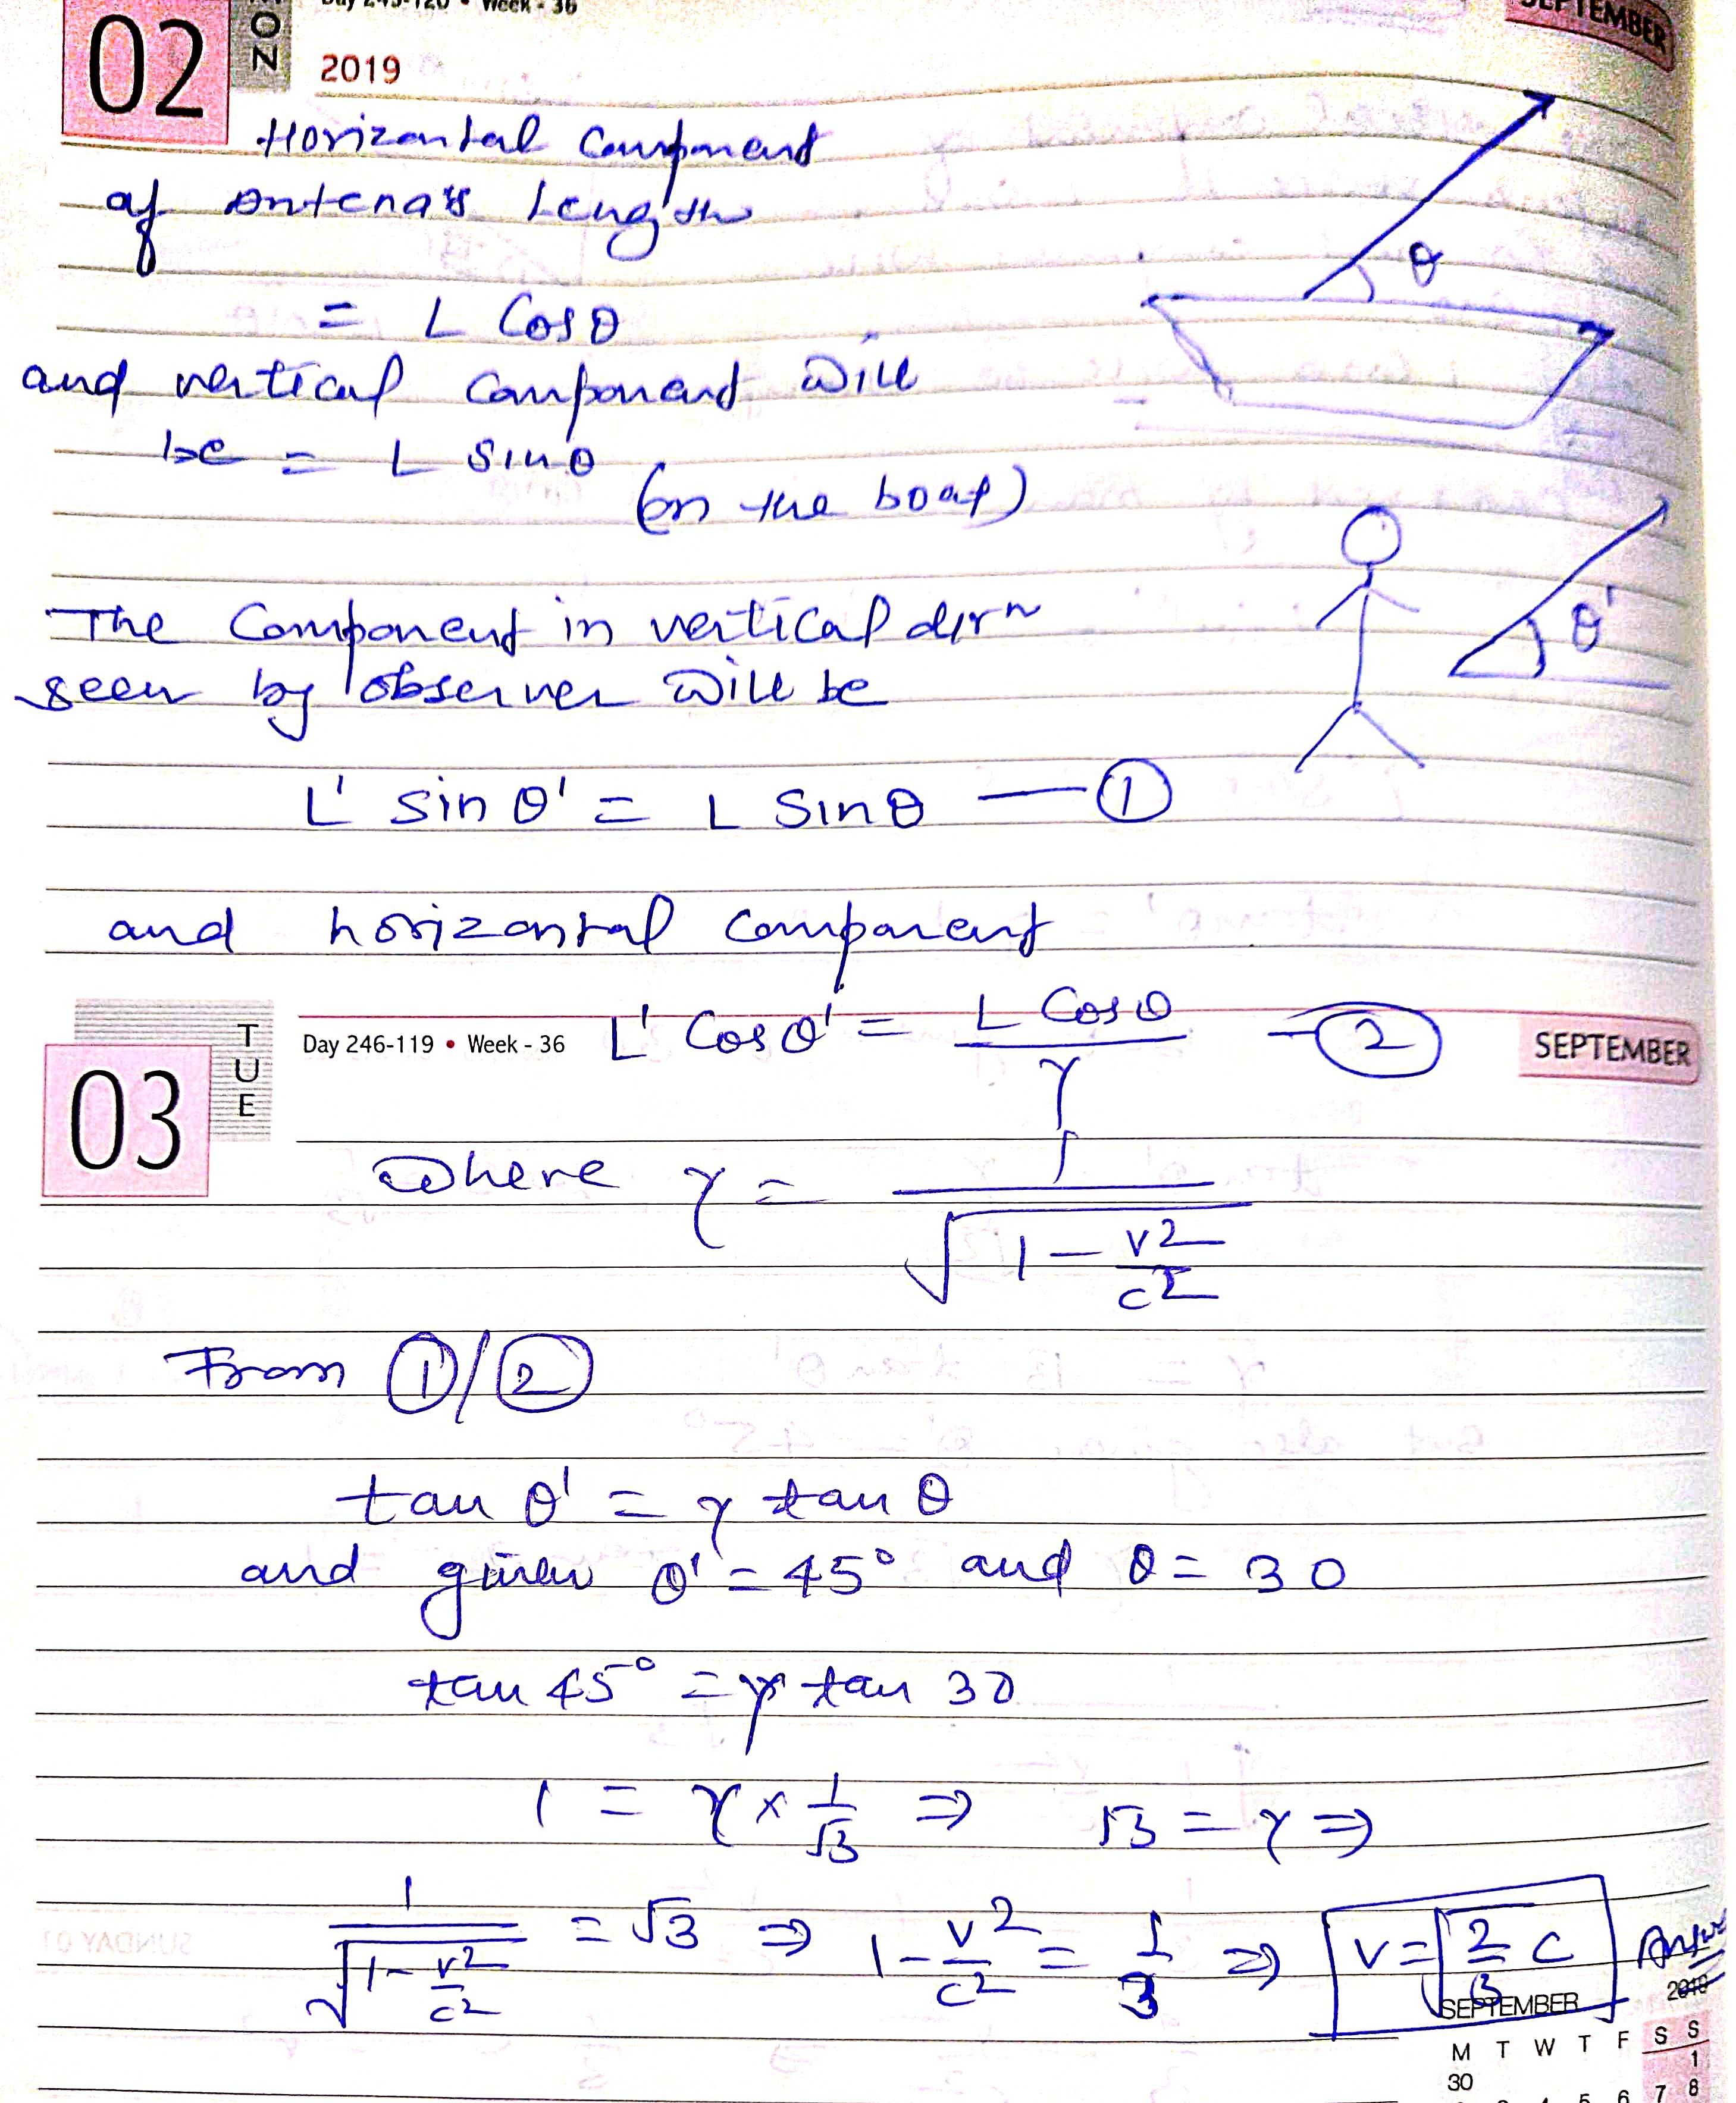 Day 245-120 • Week - 36
SEPTEMBER
02
MON
2019
Horizontal Component
of antena's Length
= L Cosθ
and vertical component will
be = L Sinθ
(on the boat)
θ
The Component in vertical dirn
seen by observer will be
θ'
L' sin θ' = L Sinθ — ①
and horizontal component
03
TUE
Day 246-119 • Week - 36
L' Cosθ' = L Cosθ / γ — ②
SEPTEMBER
where γ = 1 / √(1 - v2/c2)
From ①/②
tan θ' = γ tan θ
and given θ' = 45° and θ = 30
tan 45° = γ tan 30
1 = γ × 1/√3 ⇒ √3 = γ ⇒
1 / √(1 - v2/c2) = √3 ⇒ 1 - v2/c2 = 1/3 ⇒ v = √(2/3) c
SEPTEMBER
M T W T F S S
30 1
4 5 6 7 8